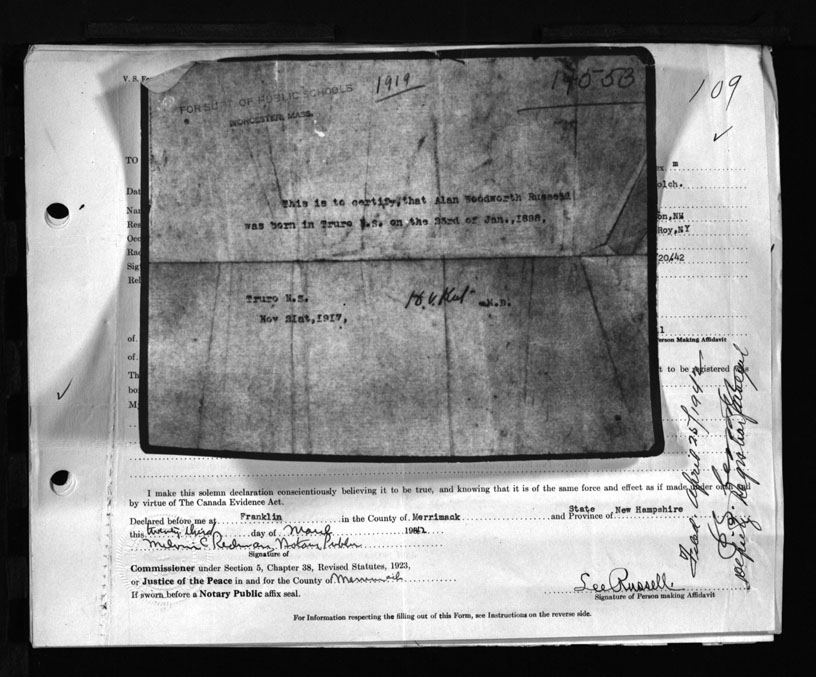 1919
19553
109
FOR SUPT OF PUBLIC SCHOOLS
WORCESTER, MASS.
This is to certify, that Alan Woodworth Russell
was born in Truro N.S. on the 23rd of Jan., 1898,
Truro N.S.
Nov 21st, 1917,
M.D.
V. S. Fo
TO
m
olch.
on,NH
Roy,NY
20/42
Person Making Affidavit
t to be registered
I make this solemn declaration conscientiously believing it to be true, and knowing that it is of the same force and effect as if made under oath and
by virtue of The Canada Evidence Act.
Declared before me at Franklin in the County of Merrimack and State Province of New Hampshire
this twenty third day of March 1942
Melvin E. Redman, Notary Public
Signature of
Commissioner under Section 5, Chapter 38, Revised Statutes, 1923,
or Justice of the Peace in and for the County of Merrimack
If sworn before a Notary Public affix seal.
Lee Russell
Signature of Person making Affidavit
For Information respecting the filling out of this Form, see Instructions on the reverse side.
April 25/1942
Deputy Registrar General